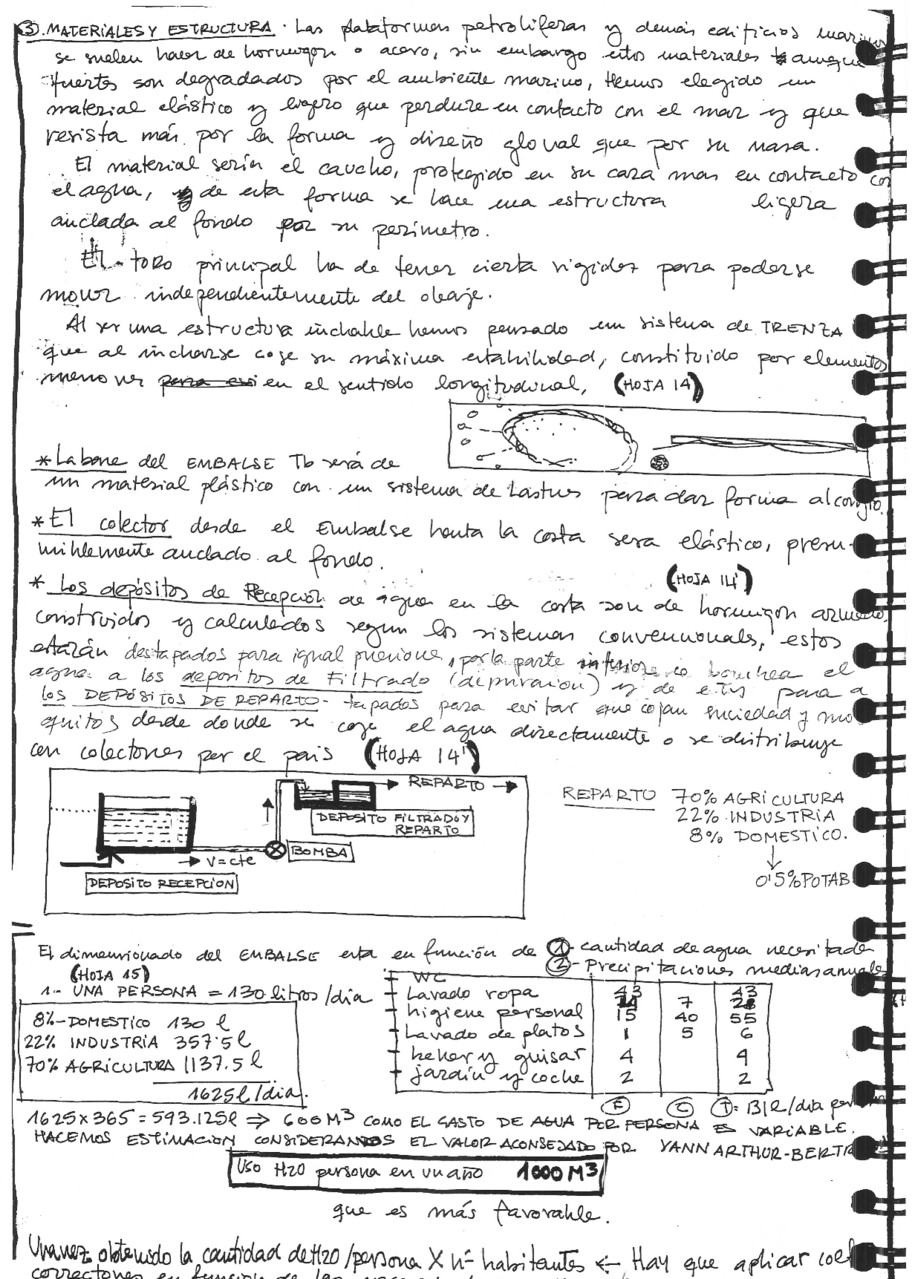 ③. MATERIALES Y ESTRUCTURA. Las plataformas petroliferas y demás edificios marinos
se suelen hacer de hormigon o acero, sin embargo estos materiales aunque
fuertes son degradados por el ambiente marino, Hemos elegido un
material elástico y ligero que perdure en contacto con el mar y que
resista más por la forma y diseño gloval que por su masa.
El material serín el caucho, protegido en su cara mas en contacto con
el agua, de esta forma se hace una estructura ligera
anclada al fondo por su perimetro.
El toro principal ha de tener cierta rigidez para poderse
mover independientemente del oleaje.
Al ser una estructura inchable hemos pensado un sistema de TRENZA
que al incharse coge su máxima estabilidad, constituido por elementos
menores en el sentido longitudunal, (HOJA 14)
* La base del EMBALSE Tb será de
un material plástico con un sistema de Lastres para dar forma al
* El colector desde el Embalse hasta la costa sera elástico, presu-
miblemente anclado al fondo.
(HOJA 14')
* Los depósitos de Recepción de agua en la costa son de hormigon armado,
construidos y calculados segun los sistemas convencionales, estos
estarán destapados para igual presione, por la parte inferior se bombea el
agua a los depositos de Filtrado (depuracion) y de estos pasa a
los DEPÓSITOS DE REPARTO - tapados para evitar que cojan suciedad y mos
quitos desde donde se coge el agua directamente o se distribuye
con colectores por el pais (HOJA 14')
REPARTO
DEPOSITO FILTRADO Y
REPARTO
BOMBA
V=cte
DEPOSITO RECEPCION
REPARTO 70% AGRICULTURA
22% INDUSTRIA
8% DOMESTICO.
↓
0'5% POTAB
El dimensionado del EMBALSE esta en función de ①- cantidad de agua necesitada
②- Precipitaciones medias anuales
(HOJA 15)
1.- UNA PERSONA = 130 litros/dia
8% - DOMESTICO 130 l
22% INDUSTRIA 357'5 l
70% AGRICULTURA 1137.5 l
1625 l/dia.
- WC 43 43
- Lavado ropa 7 28
- higiene personal 15 40 55
- Lavado de platos 1 5 6
- beber y guisar 4 4
- jardin y coche 2 2
Ⓕ Ⓒ Ⓣ = 131 l/dia
1625 x 365 = 593.125 l ⇒ 600 M³ COMO EL GASTO DE AGUA POR PERSONA ES VARIABLE.
HACEMOS ESTIMACION CONSIDERANDOS EL VALOR ACONSEJADO POR YANN ARTHUR-BERTR
USO H2O persona en un año 1000 M³
que es más favorable.
Una vez obtenido la cantidad de H2O/persona X nº habitantes ← Hay que aplicar coef
correctores en función de las